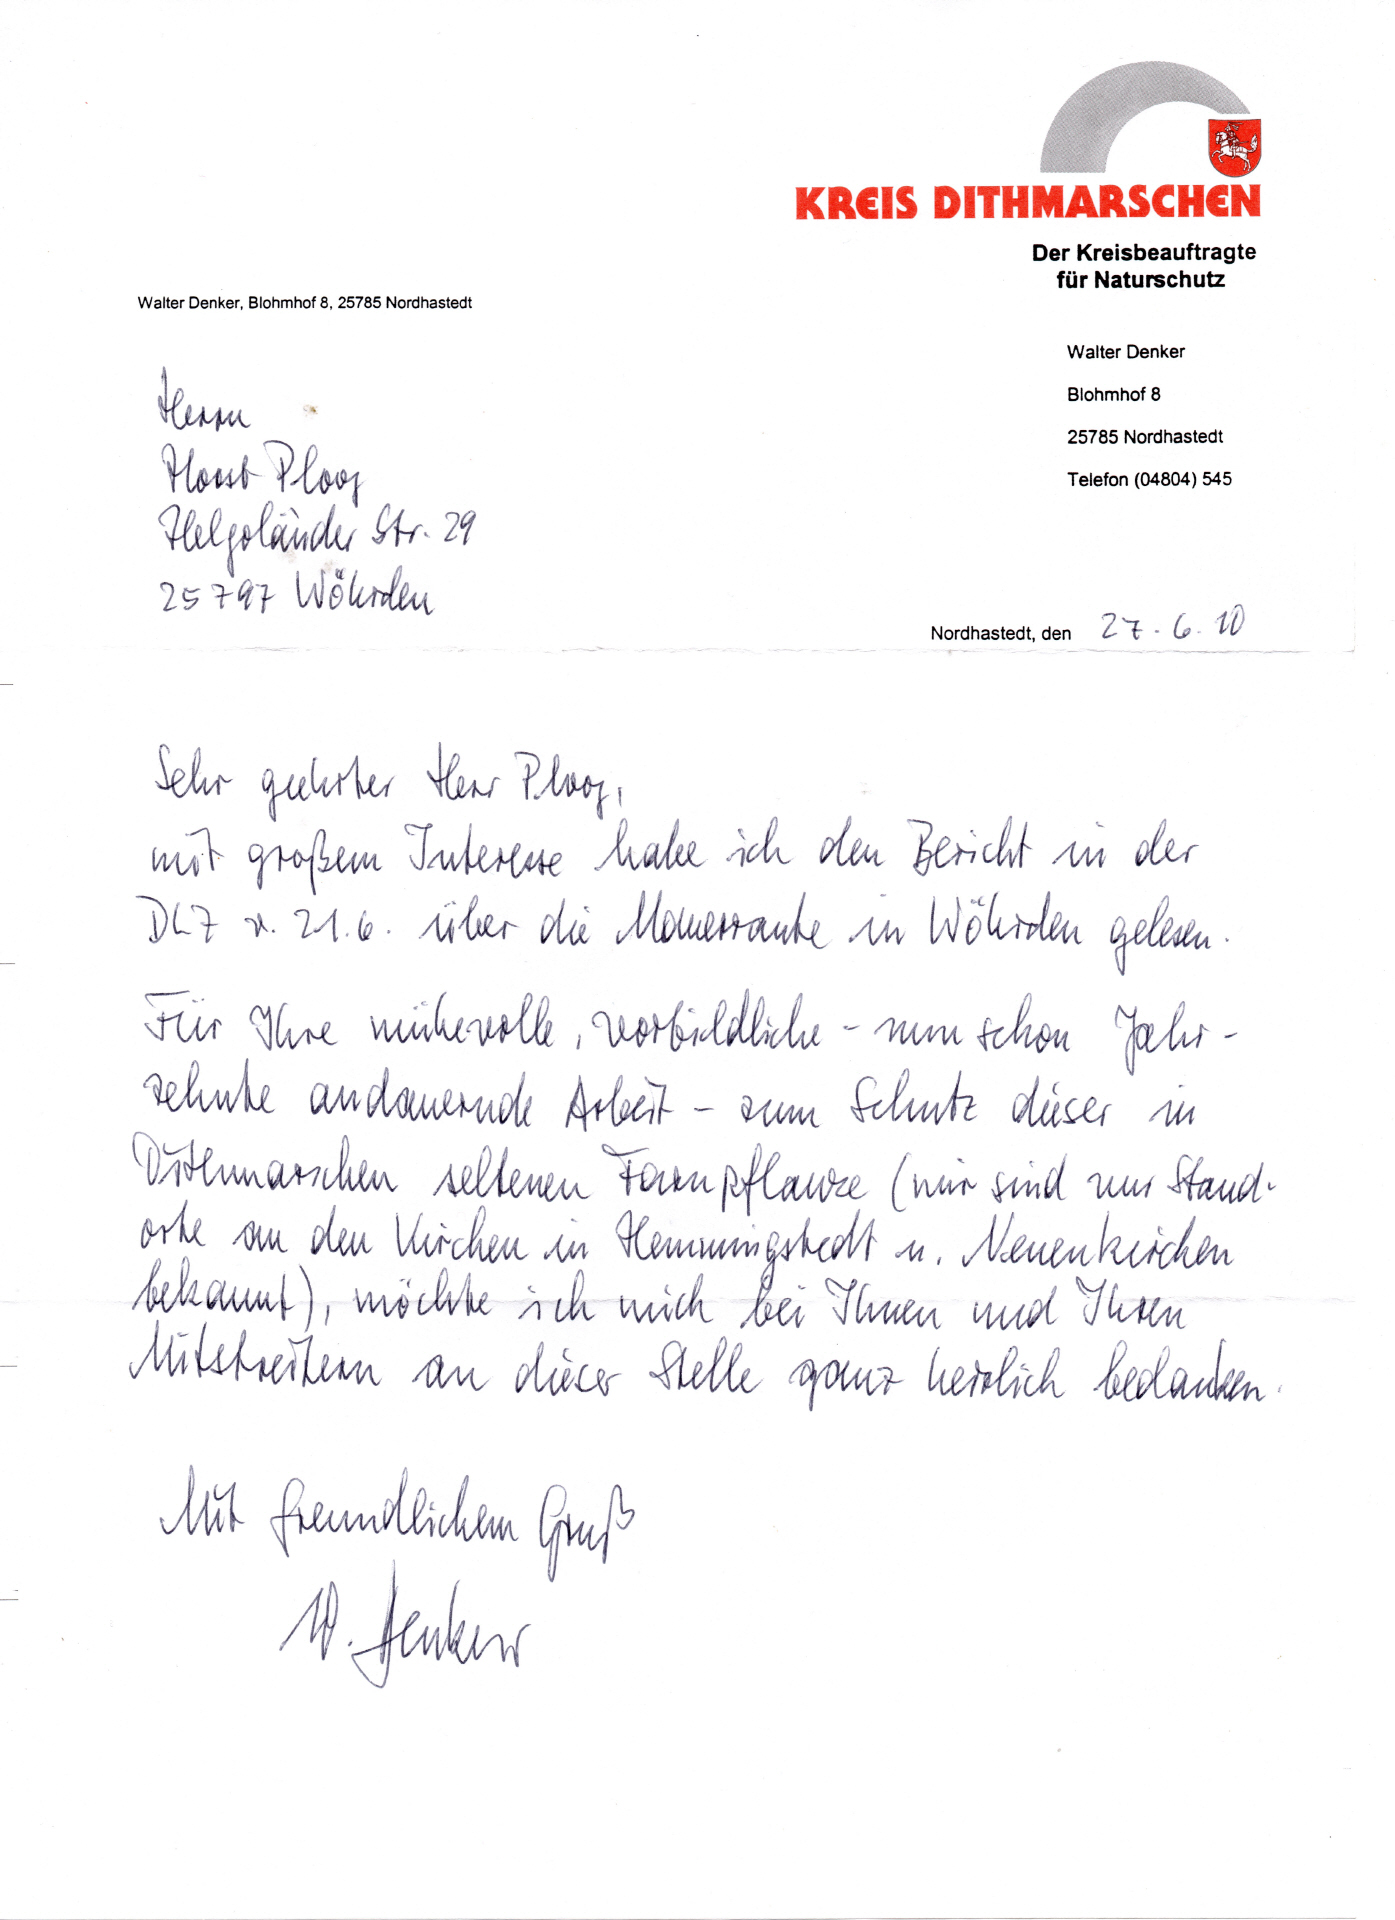 KREIS DITHMARSCHEN
Der Kreisbeauftragte
für Naturschutz
Walter Denker, Blohmhof 8, 25785 Nordhastedt
Walter Denker
Blohmhof 8
25785 Nordhastedt
Telefon (04804) 545
Herrn
Horst Ploog
Helgoländer Str. 29
25797 Wöhrden
Nordhastedt, den 27.6.10
Sehr geehrter Herr Ploog,
mit großem Interesse habe ich den Bericht in der
DLZ v. 21.6. über die Mauerraute in Wöhrden gelesen.
Für Ihre mühevolle, vorbildliche - nun schon Jahr-
zehnte andauernde Arbeit - zum Schutz dieser in
Dithmarschen seltenen Farnpflanze (mir sind nur Stand-
orte an den Kirchen in Hemmingstedt u. Neuenkirchen
bekannt), möchte ich mich bei Ihnen und Ihren
Mitstreitern an dieser Stelle ganz herzlich bedanken.
Mit freundlichem Gruß
W. Denker